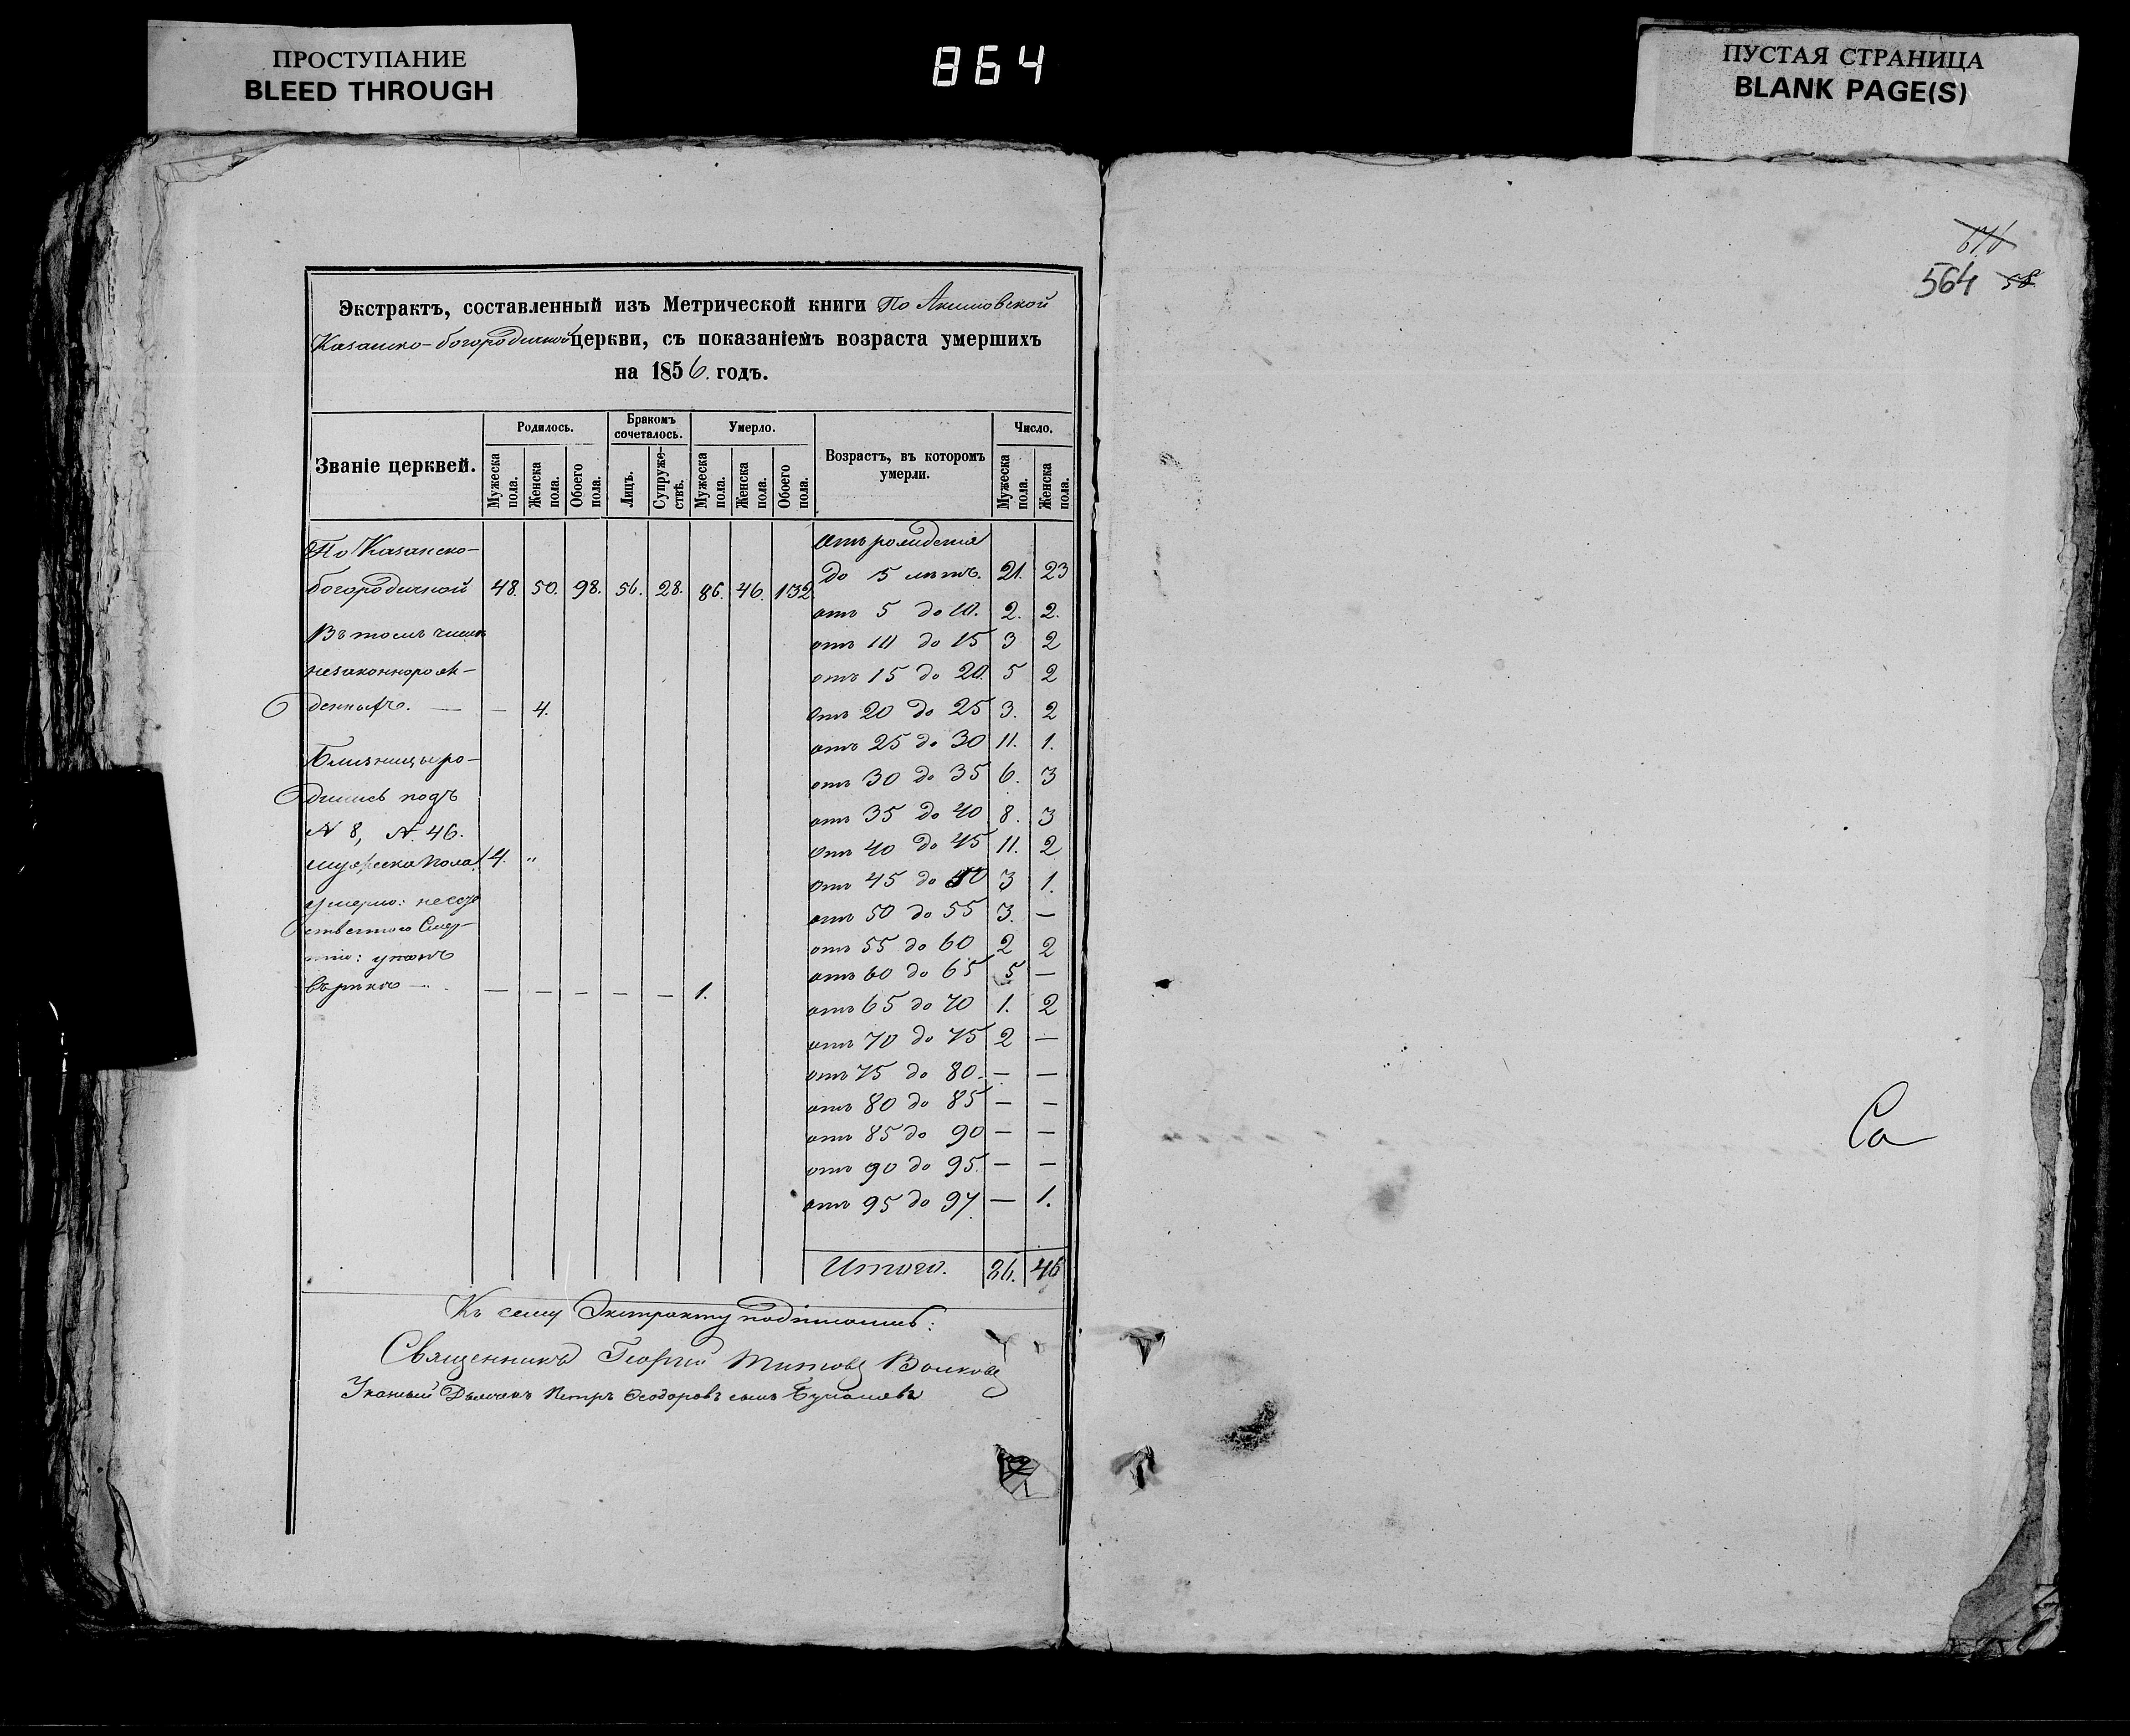 ПРОСТУПАНІЕ
BLEED THROUGH
864
ПУСТАЯ СТРАНИЦА
BLANK PAGE(S)
564 58
Экстрактъ, составленный изъ Метрической книги По Акимовской
Казанско-богородичной церкви, съ показаніемъ возраста умершихъ
на 1856. годъ.
Званіе церквей.
Родилось.
Мужеска пола.
Женска пола.
Обоего пола.
Бракомъ сочеталось.
Лицъ.
Супружествъ.
Умерло.
Мужеска пола.
Женска пола.
Обоего пола.
Возрастъ, въ которомъ умерли.
Число.
Мужеска пола.
Женска пола.
По Казанско-
богородичной 48. 50. 98. 56. 28. 86. 46. 132
Въ томъ числѣ
незаконнорож-
денныхъ. — — 4.
Близницы ро-
дились подъ
N 8, N. 46.
мужеска пола 4. "
умерло: несо
ственною Смер-
тію: утопъ
въ рѣкѣ — — — — — — 1.
Отъ рожденія
до 5 лѣтъ. 21. 23
отъ 5 до 10. 2. 2.
отъ 10 до 15 3 2
отъ 15 до 20. 5 2
отъ 20 до 25 3. 2
отъ 25 до 30 11. 1.
отъ 30 до 35 6. 3
отъ 35 до 40 8. 3
отъ 40 до 45 11. 2
отъ 45 до 50 3 1.
отъ 50 до 55 3. —
отъ 55 до 60 2 2
отъ 60 до 65 5 —
отъ 65 до 70 1. 2
отъ 70 до 75 2 —
отъ 75 до 80. — —
отъ 80 до 85 — —
отъ 85 до 90 — —
отъ 90 до 95. — —
отъ 95 до 97. — 1.
Итого. 86. 46
Къ сему Экстракту подписались:
Священникъ Георгій Титовъ Волковъ
Указный Дьячекъ Петръ Ѳеодоровъ сынъ
Са